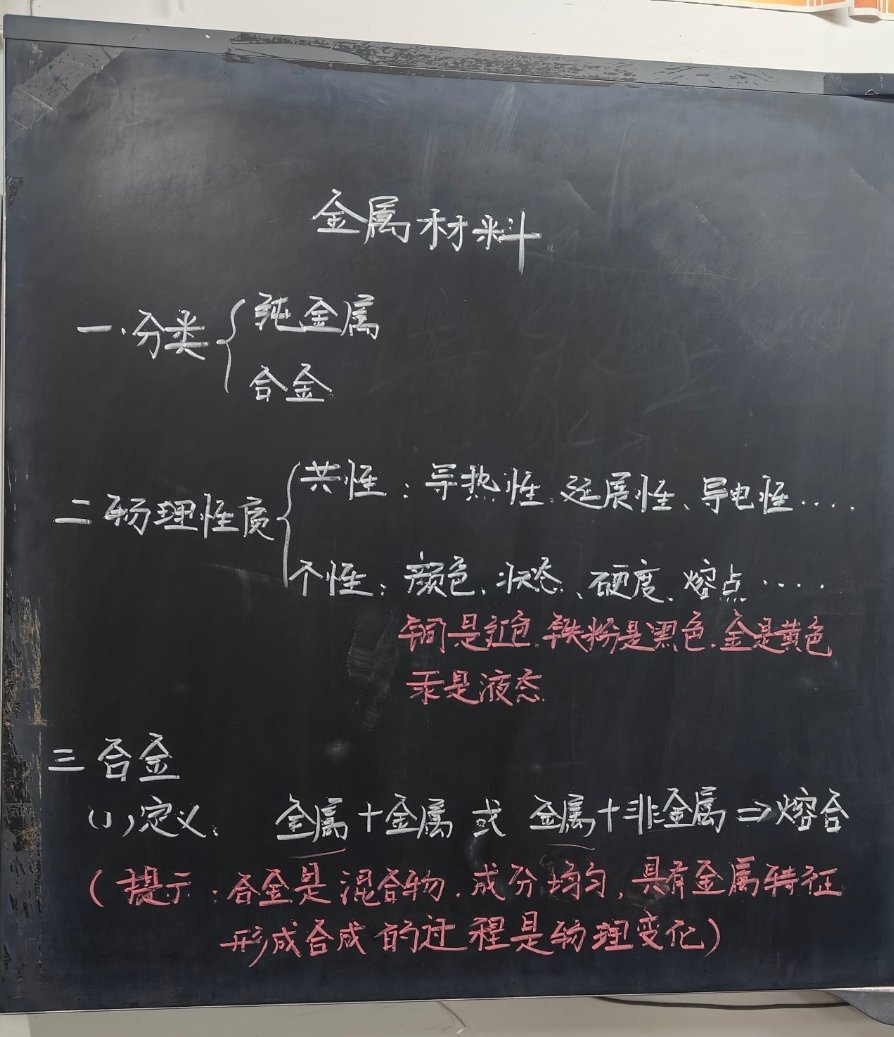 金属材料
一.分类{纯金属
合金
二物理性质{共性:导热性.延展性、导电性....
个性:颜色、状态、硬度、熔点....
铜是红色.铁粉是黑色.金是黄色
汞是液态
三合金
(1)定义: 金属+金属 或 金属+非金属⇒熔合
(提示:合金是混合物.成分均匀,具有金属特征
形成合成的过程是物理变化)